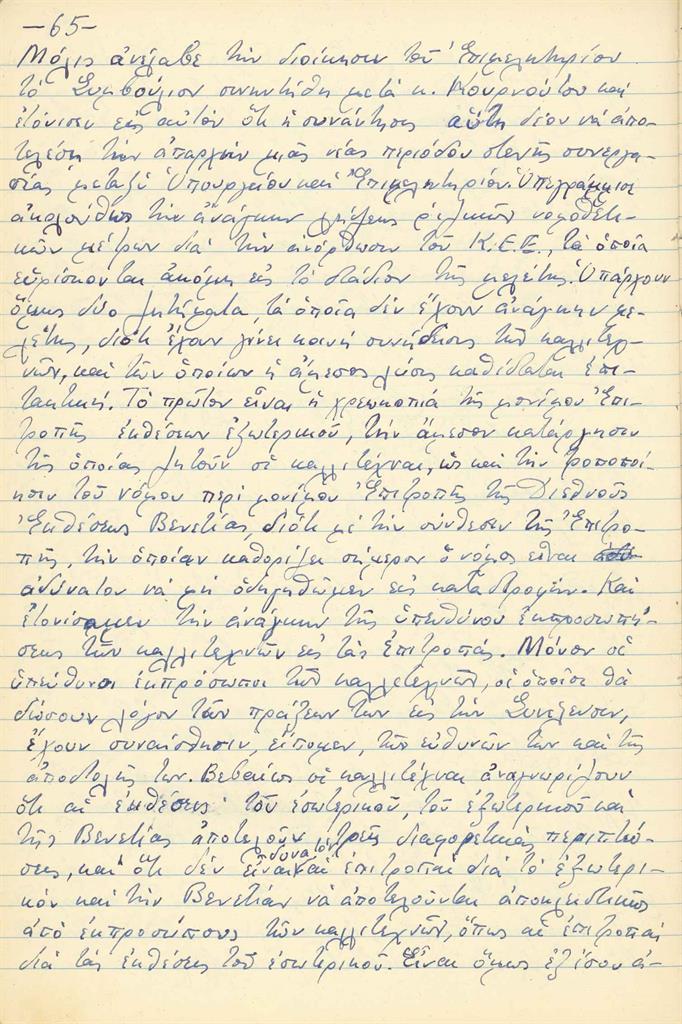 -65-
Μόλις ἀνέλαβε τὴν διοίκησιν τοῦ Ἐπιμελητηρίου
τὸ Συμβούλιον συνηντήθη μετὰ κ. Κουρνούτου καὶ
ἐτόνισεν εἰς αὐτὸν ὅτι ἡ συνάντησις αὕτη δέον νὰ ἀπο-
τελέσῃ τὴν ἀπαρχὴν μιᾶς νέας περιόδου στενῆς συνεργα-
σίας μεταξὺ Ὑπουργείου καὶ Ἐπιμελητηρίου. Ὑπεγράμμισε
ἀκολούθως τὴν ἀνάγκην λήψεως ριζικῶν νομοθετι-
κῶν μέτρων διὰ τὴν ἀνόρθωσιν τοῦ Κ.Ε.Ε., τὰ ὁποῖα
εὑρίσκονται ἀκόμη εἰς τὸ στάδιον τῆς μελέτης. Ὑπάρχουν
ὅμως δύο ζητήματα, τὰ ὁποῖα δὲν ἔχουν ἀνάγκην με-
λέτης, διότι ἔχουν γίνει κοινὴ συνείδησις τῶν καλλιτεχ-
νῶν, καὶ τῶν ὁποίων ἡ ἄμεσος λύσις καθίσταται ἐπι-
τακτική. Τὸ πρῶτον εἶναι ἡ χρεωκοπία τῆς μονίμου Ἐπι-
τροπῆς ἐκθέσεων ἐξωτερικοῦ, τὴν ἄμεσον κατάργησιν
τῆς ὁποίας ζητοῦν οἱ καλλιτέχναι, ὡς καὶ τὴν τροποποί-
ησιν τοῦ νόμου περὶ μονίμου Ἐπιτροπῆς τῆς Διεθνοῦς
Ἐκθέσεως Βενετίας, διότι μὲ τὴν σύνθεσιν τῆς Ἐπιτρο-
πῆς, τὴν ὁποίαν καθορίζει σήμερον ὁ νόμος εἶναι
ἀδύνατον νὰ μὴ ὁδηγηθῶμεν εἰς καταστροφήν. Καὶ
ἐτονίσαμεν τὴν ἀνάγκην τῆς ὑπευθύνου ἐκπροσωπή-
σεως τῶν καλλιτεχνῶν εἰς τὰς ἐπιτροπάς. Μόνον οἱ
ὑπεύθυνοι ἐκπρόσωποι τῶν καλλιτεχνῶν, οἱ ὁποῖοι θὰ
δώσουν λόγον τῶν πράξεών των εἰς τὴν Συνέλευσιν,
ἔχουν συναίσθησιν, εἴπομεν, τῶν εὐθυνῶν των καὶ τῆς
ἀποστολῆς των. Βεβαίως οἱ καλλιτέχναι ἀναγνωρίζουν
ὅτι αἱ ἐκθέσεις τοῦ ἐσωτερικοῦ, τοῦ ἐξωτερικοῦ καὶ
τῆς Βενετίας ἀποτελοῦν τρεῖς διαφορετικὰς περιπτώ-
σεις, καὶ ὅτι δὲν εἶναι δυνατὸν αἱ ἐπιτροπαὶ διὰ τὸ ἐξωτερι-
κὸν καὶ τὴν Βενετίαν νὰ ἀποτελοῦνται ἀποκλειστικῶς
ἀπὸ ἐκπροσώπους τῶν καλλιτεχνῶν, ὅπως αἱ ἐπιτροπαὶ
διὰ τὰς ἐκθέσεις τοῦ ἐσωτερικοῦ. Εἶναι ὅμως ἐξ ἴσου ἀ-